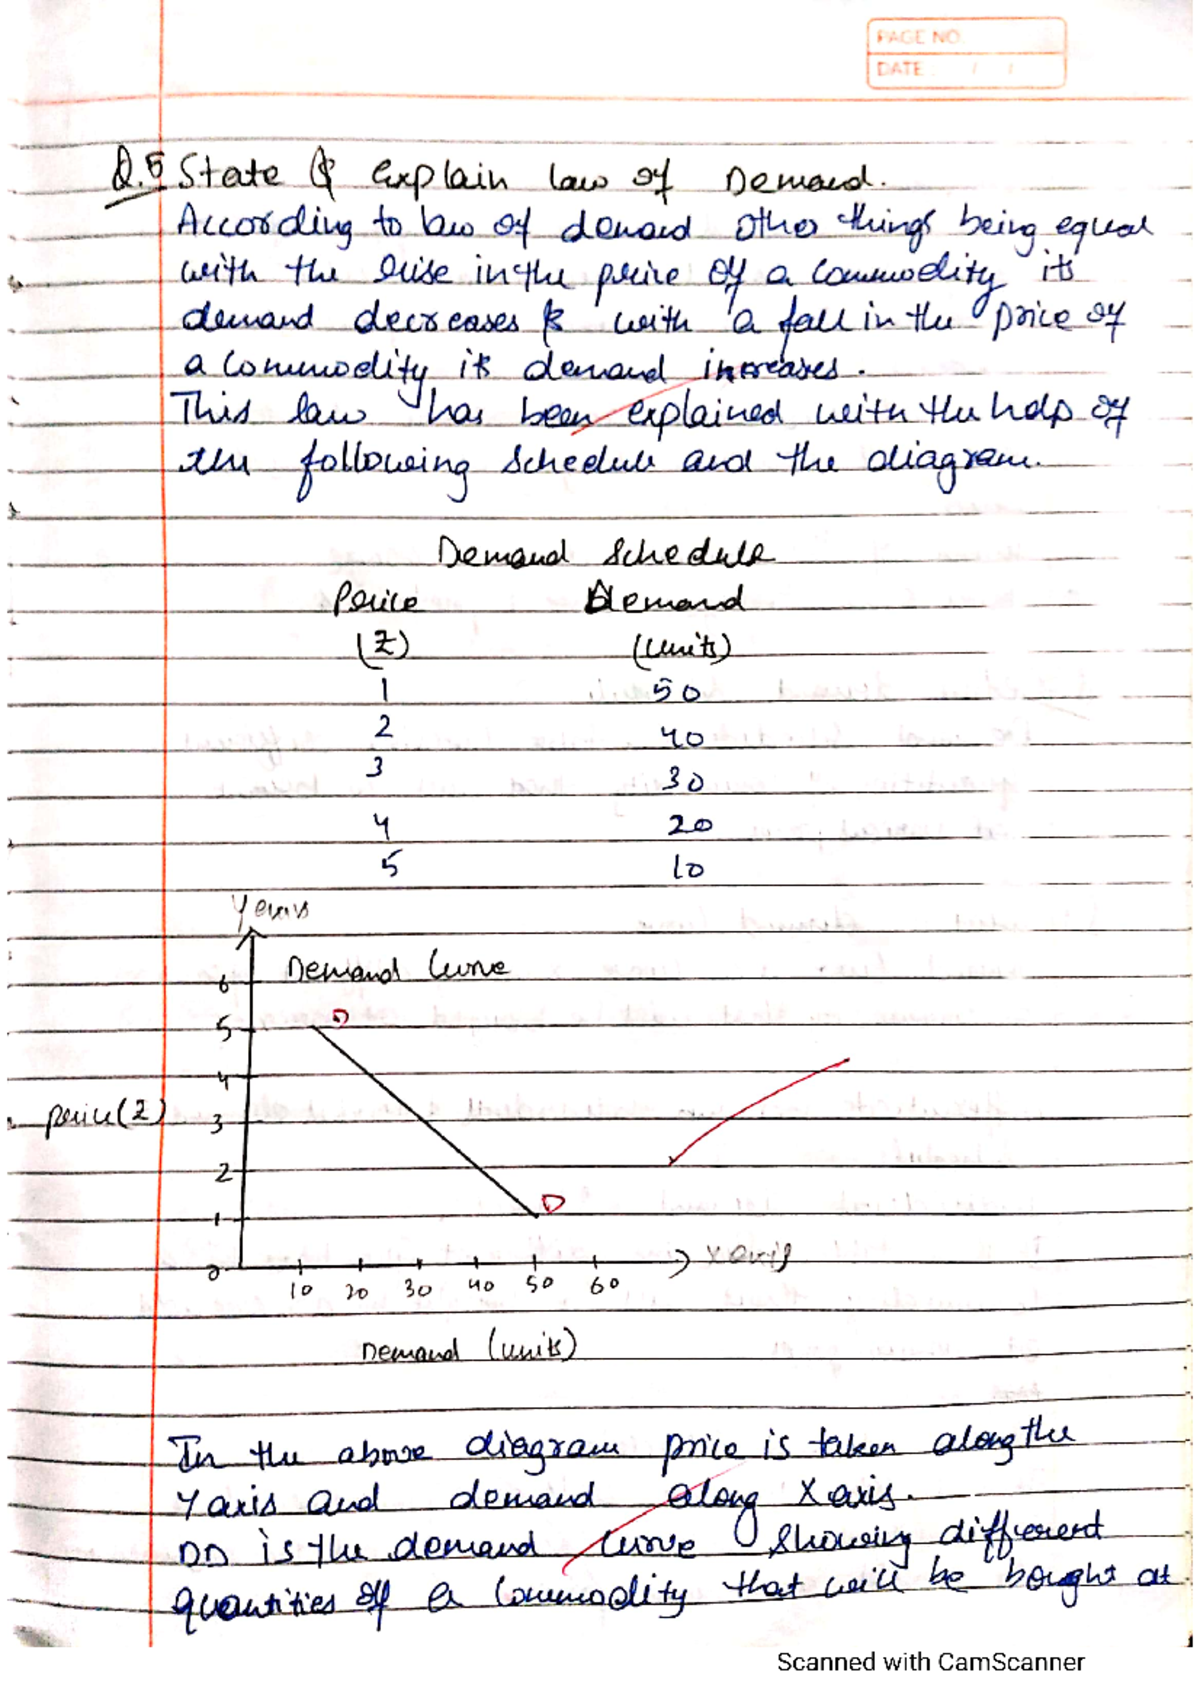 PAGE NO.
DATE : / /
Q.5 State & explain law of Demand.
According to law of demand other things being equal
with the rise in the price of a commodity its
demand decreases & with a fall in the price of
a commodity its demand increases.
This law has been explained with the help of
the following schedule and the diagram.
Demand Schedule
Price Demand
(₹) (units)
1 50
2 40
3 30
4 20
5 10
Y axis
Demand Curve
6
5 D
4
price (₹) 3
2
1 D
0 X axis
10 20 30 40 50 60
Demand (units)
In the above diagram price is taken along the
Y axis and demand along X axis.
DD is the demand curve showing different
quantities of a commodity that will be bought at
Scanned with CamScanner